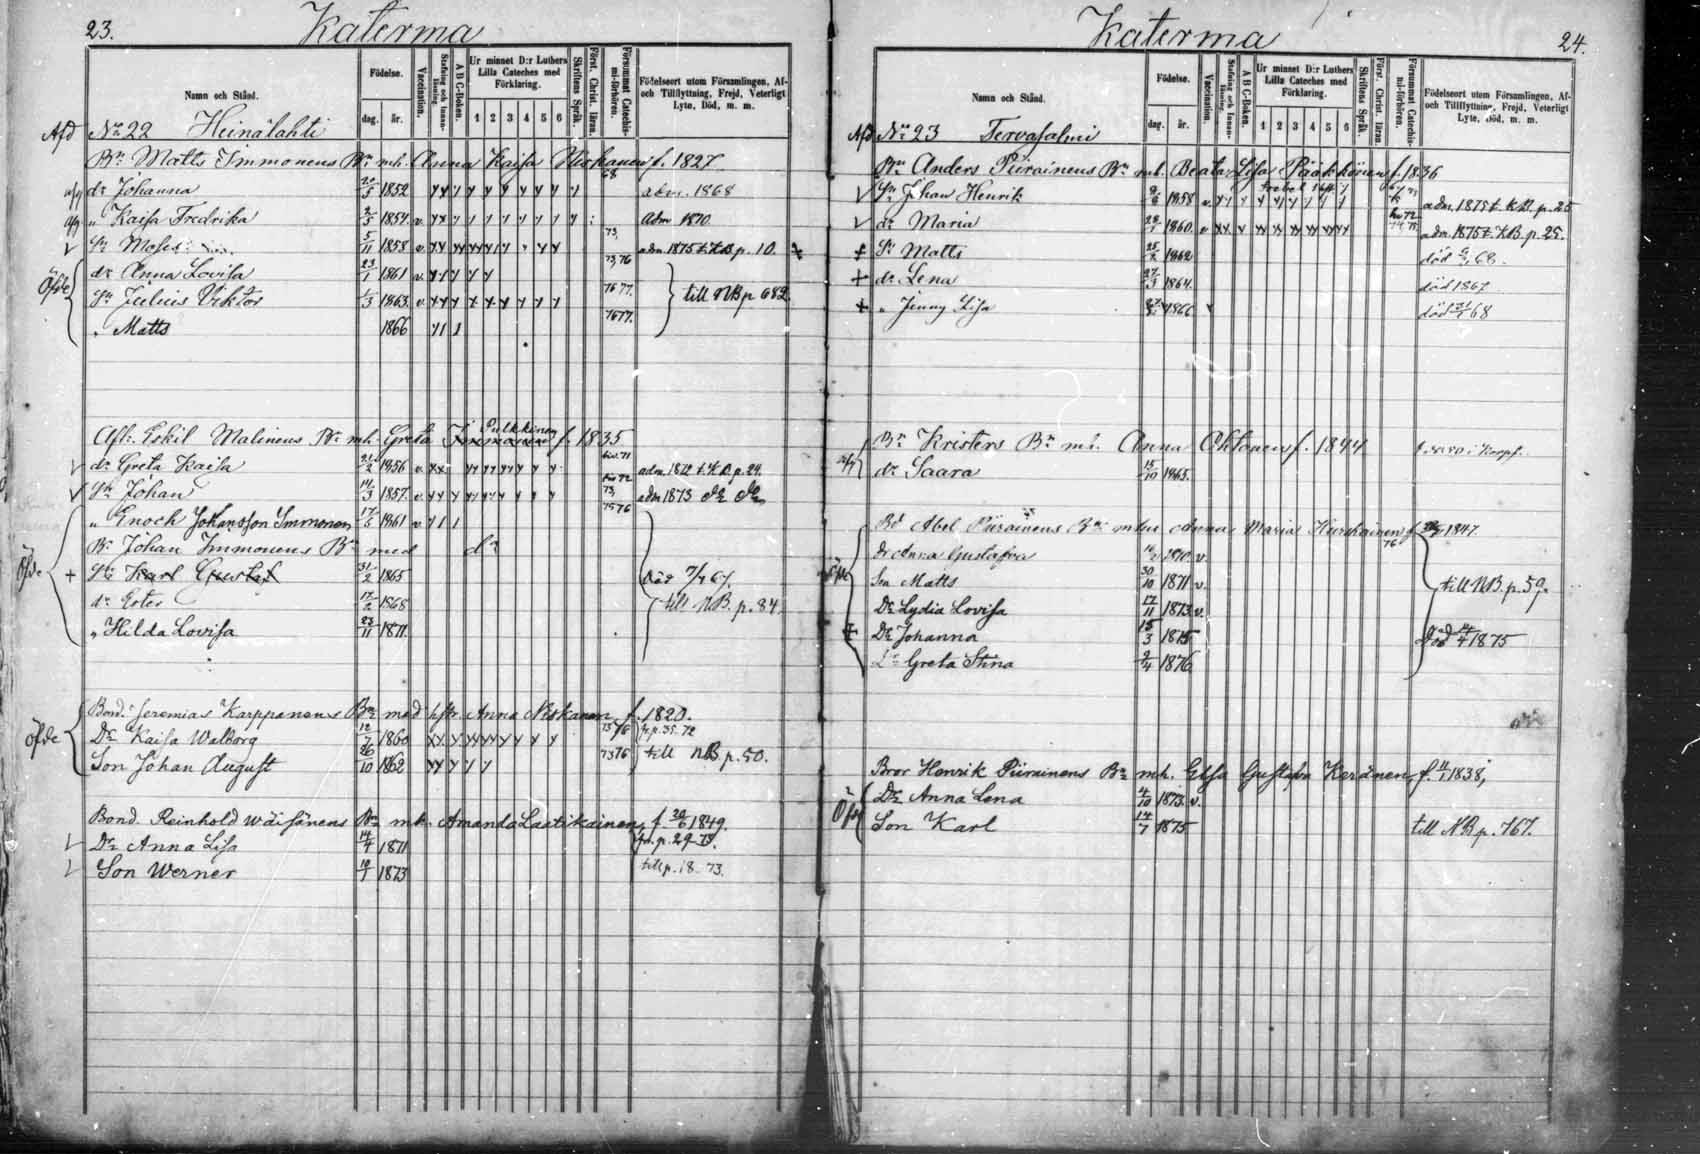 23. Katerma
Namn och Stånd.
Födelse.
dag. år.
Vaccination.
Stafning och Innan-läsning.
A B C-Boken.
Ur minnet D:r Luthers Lilla Cateches med Förklaring.
1 2 3 4 5 6
Skriftens Språk.
Först. Christ. läran.
Försummat Catechis-mi-förhören.
Födelseort utom Församlingen, Af- och Tillflyttning, Frejd, Veterligt Lyte, Död, m. m.
Afd No 22 Heinälahti
Bn: Matts Immonens Bn mh. Anna Kaisa Niskanen f. 1827
dr Johanna 20/5 1852 68 adm. 1868
" Kaisa Fredrika 2/5 1854 v. adm 1870
Sn Moses 5/11 1858 v. 73, adm. 1875 t. KB p. 10.
Öfde dr Anna Lovisa 23/1 1861 v. 73, 76
Sn Julius Viktor 1/3 1863 v. 76 77. till NB p 682
" Matts 1866 76 77.
Aflr Eskil Malinens Bn mh. Greta Immonen Pulkkinen f. 1835
dr Greta Kaisa 21/2 1856 v. 71 adm. 1872 t. KB. p. 24.
Sn Johan 14/3 1857 v. 72 73, adm 1873 do do
" Enoch Johansson Immonen 17/5 1861 v. 75 76
Bn Johan Immonens Bn med do
Öfde + Sn Karl Gustaf 31/2 1865 död 7/4 67.
dr Ester 17/2 1868 till NB. p. 84
" Hilda Lovisa 23/11 1871.
Bond. Jeremias Karppanens Bn med hstr Anna Niskanen f. 1820.
Öfde Dr Kaisa Walborg 12/7 1860 75 76 fr. p. 35. 72
Son Johan August 26/10 1862 73 76 till NB. p. 50.
Bond. Reinhold Wäisänens Bn mh. Amanda Laatikainen, f. 20/6 1849.
Dr Anna Lisa 14/4 1871 fr. p. 29 73.
Son Werner 19/1 1873 till p. 18 73.
Katerma 24.
Namn och Stånd.
Födelse.
dag. år.
Vaccination.
Stafning och Innan-läsning.
A B C-Boken.
Ur minnet D:r Luthers Lilla Cateches med Förklaring.
1 2 3 4 5 6
Skriftens Språk.
Först. Christ. läran.
Försummat Catechis-mi-förhören.
Födelseort utom Församlingen, Af- och Tillflyttning, Frejd, Veterligt Lyte, Död, m. m.
Afd No 23 Tervasalmi
Bn Anders Piirainens Bn mh. Beata Lisa Pääkkönen f. 1836
Sn Johan Henrik 1858 v. adm. 1875 t. KB. p. 25
dr Maria 1860 v. 72 adm. 1875 t. KB. p. 25.
+ Sn Matts 1862 död 68.
+ dr Lena 1864. död 1867
+ " Jenny Lisa 1866 död 68
Bn Kristers Bn mh. Anna Ohtonen f. 1844
dr Saara 15/10 1865.
Bd Abel Piirainens Bn mhu Anna Maria Kurkainen f. 1847.
Öfde Dr Anna Gustafva 1870 v.
Son Matts 30/10 1871 v. till NB. p. 59.
Dr Lydia Lovisa 17/11 1873 v.
+ Dr Johanna 15/3 1875 Död 14/4 1875
Dr Greta Stina 2/4 1876
Bror Henrik Piirainens Bn mh. Elsa Gustafva Keränen, f. 11/1 1838,
Öfde Dr Anna Lena 4/10 1873 v.
Son Karl 14/7 1875 till NB p. 767.